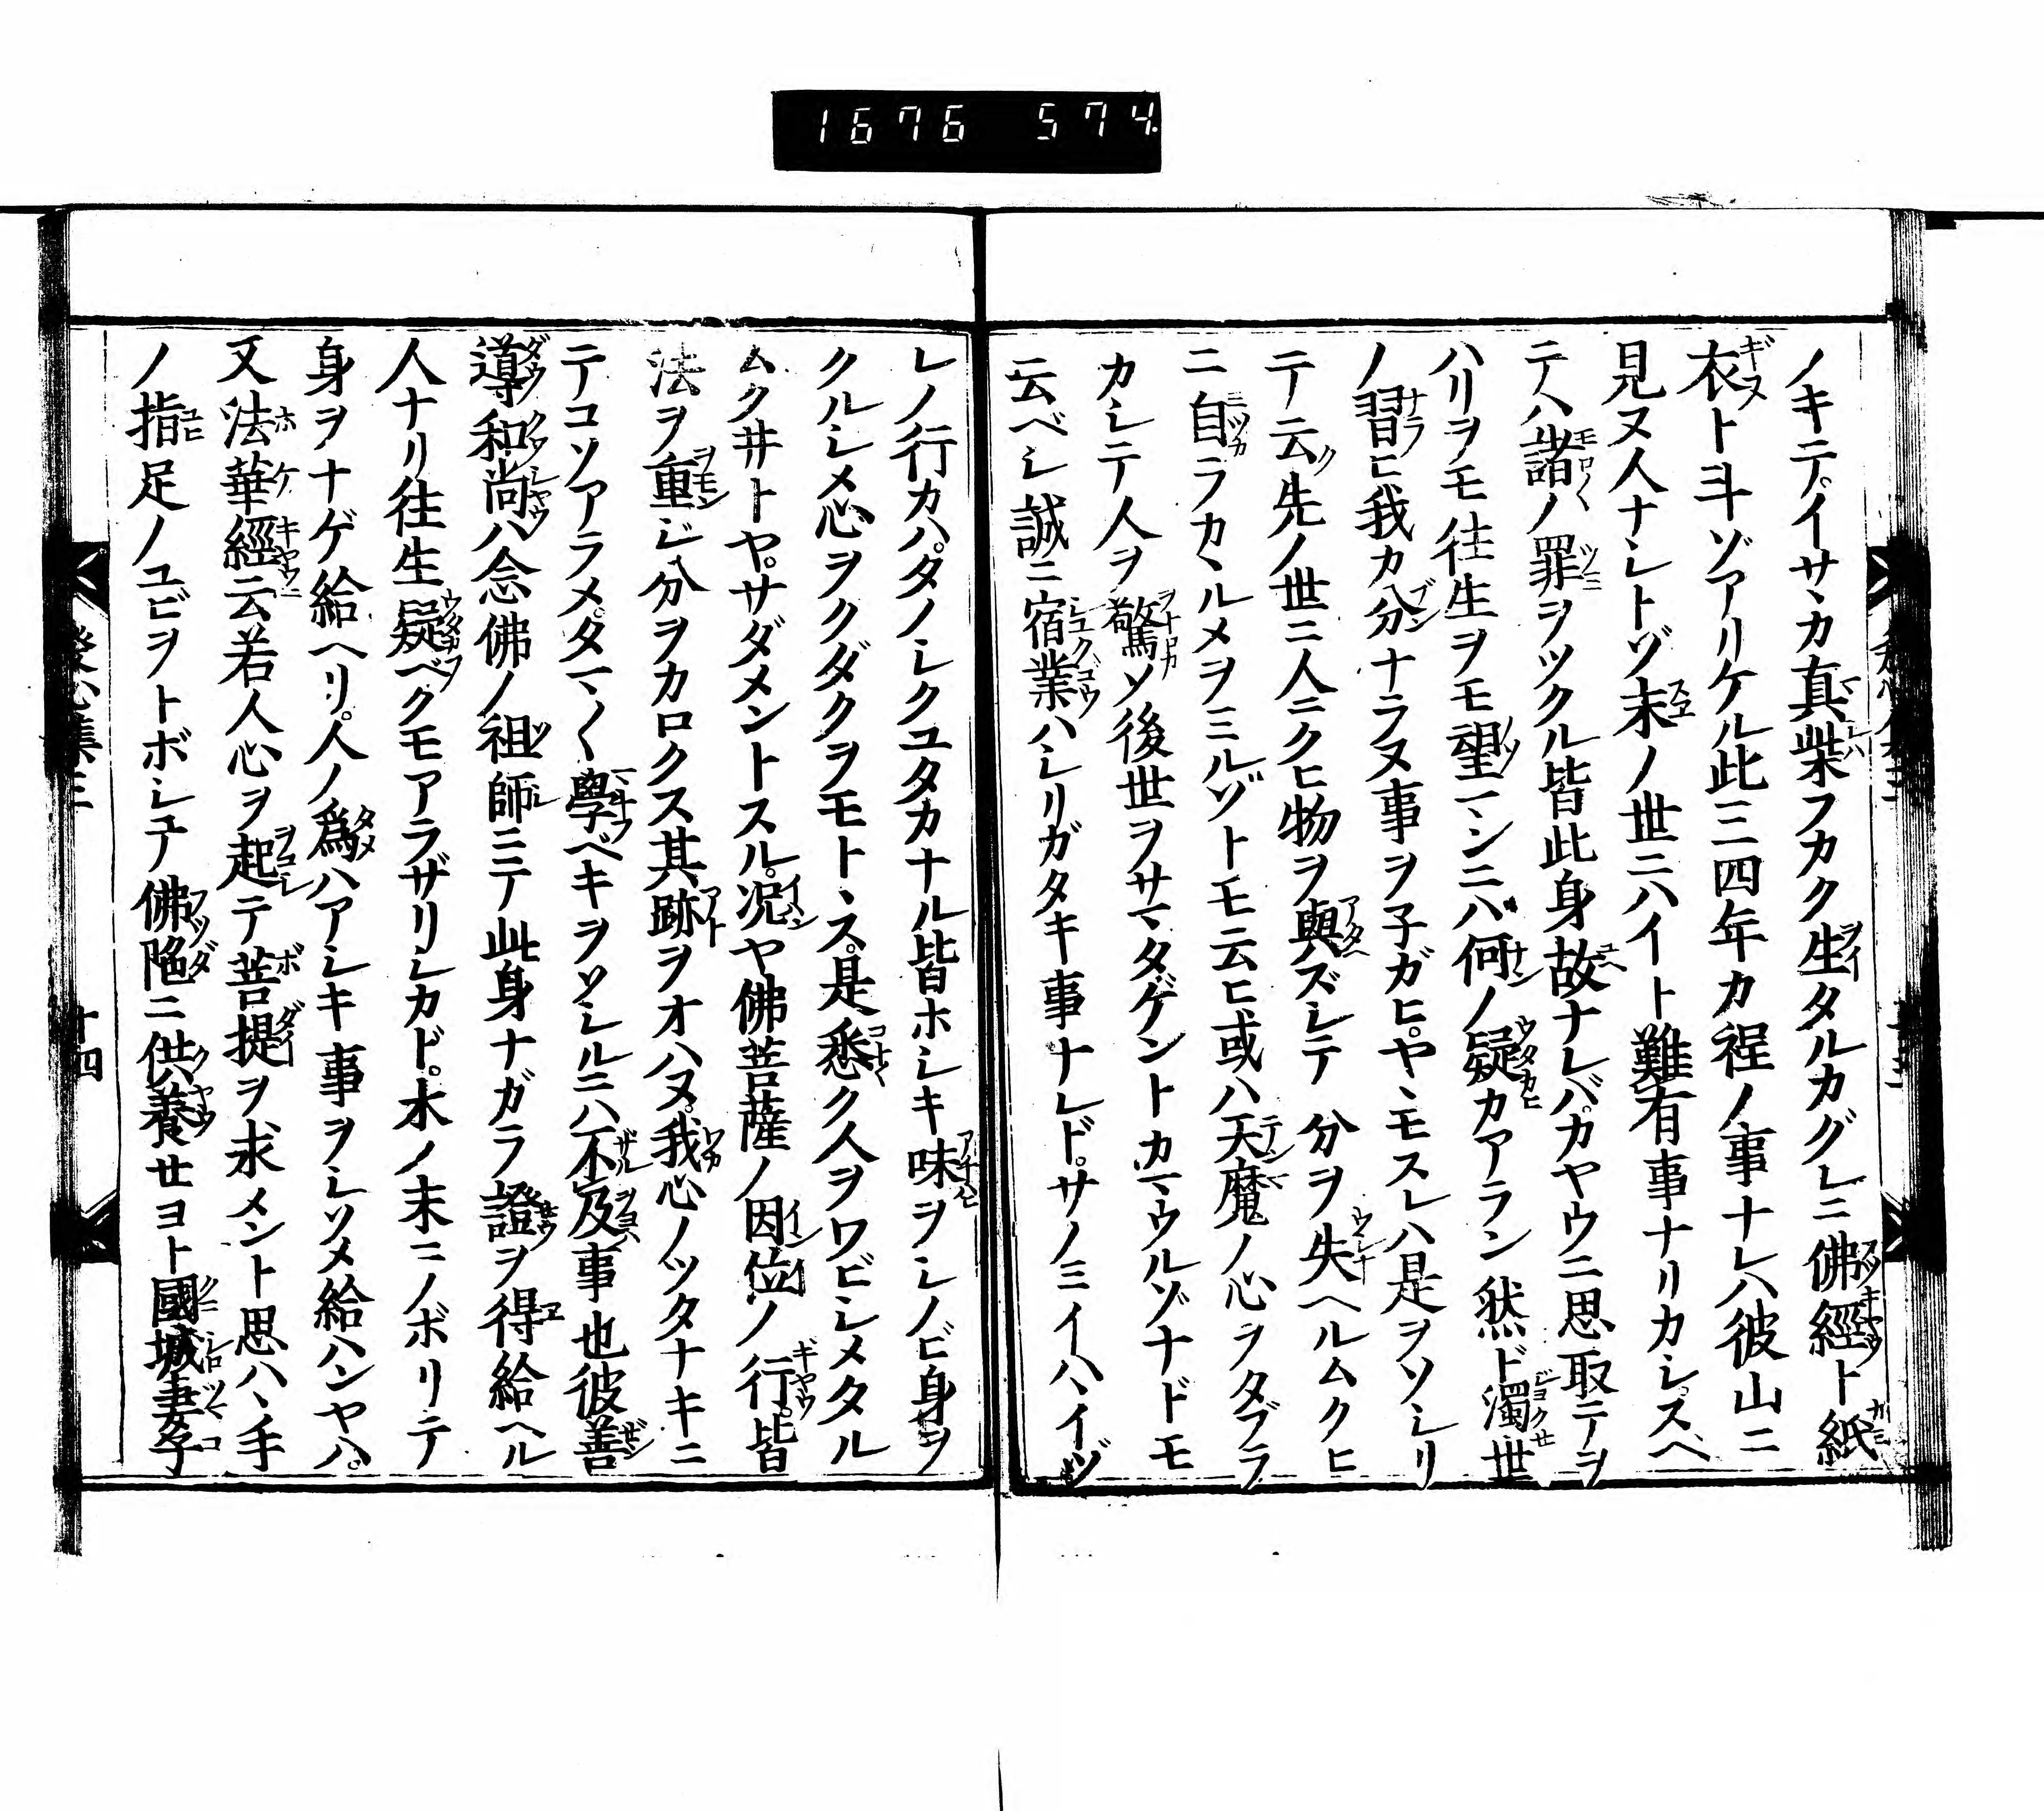 1676 574.
ノキテ。イサヽカ真柴フカク生タルカグレニ佛經ト紙
衣ト斗ゾアリケル此三四年カ程ノ事ナレハ彼山ニ
見ヌ人ナシトヅ末ノ世ニハイト難有事ナリカシ。スヘ
テハ諸ノ罪ヲツクル皆此身故ナレバ。カヤウニ思取テヲ
ハリヲモ往生ヲモ望マンニハ何ノ疑カアラン然ド濁世
ノ習ヒ我カ分ナラヌ事ヲ子ガヒ。ヤヽモスレハ是ヲソシリ
テ云ク先ノ世ニ人ニクヒ物ヲ與ズシテ分ヲ失ヘルムクヒ
ニ自ラカヽルメヲミルゾトモ云ヒ或ハ天魔ノ心ヲタブラ
カシテ人ヲ驚ソ後世ヲサマタゲントカマウルゾナドモ
云ベシ誠ニ宿業ハシリガタキ事ナレド。サノミイハヽイヅ
レノ行カハ。タノシクユタカナル皆ホシキ味ヲシノビ身ヲ
クルシメ心ヲクダクヲモトヽス。是悉ク人ヲワビシメタル
ムクヰトヤ。サダメントスル。况ヤ佛菩薩ノ因位ノ行。皆
法ヲ重ジ分ヲカロクス其跡ヲオハヌ。我心ノツタナキニ
テコソアラメ。タマ〳〵學ベキヲソシルニハ不及事也彼善
導和尚ハ念佛ノ祖師ニテ此身ナガラ證ヲ得給ヘル
人ナリ往生疑ベクモアラザリシカド。木ノ末ニノボリテ
身ヲナゲ給ヘリ。人ノ爲ハアシキ事ヲシソメ給ハンヤハ。
又法華經云若人心ヲ起テ菩提ヲ求メント思ハヽ手
ノ指足ノユビヲトボシテ佛陁ニ供養せヨト國城妻子
發心集三
十四